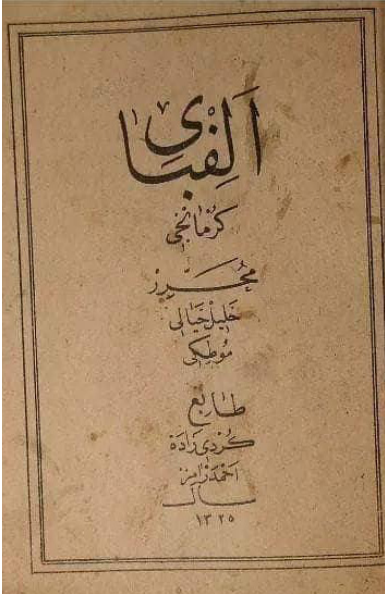 اَلِفبَاىِ
كُرْمَانْجِی
مُحَرِّرْ
خَلِيلْ خَيَالِی
مُوطْكِی
طَابِعْ
كُرْدِی زَادَه
اَحْمَدْ رَامِزْ
سال
١٣٢٥